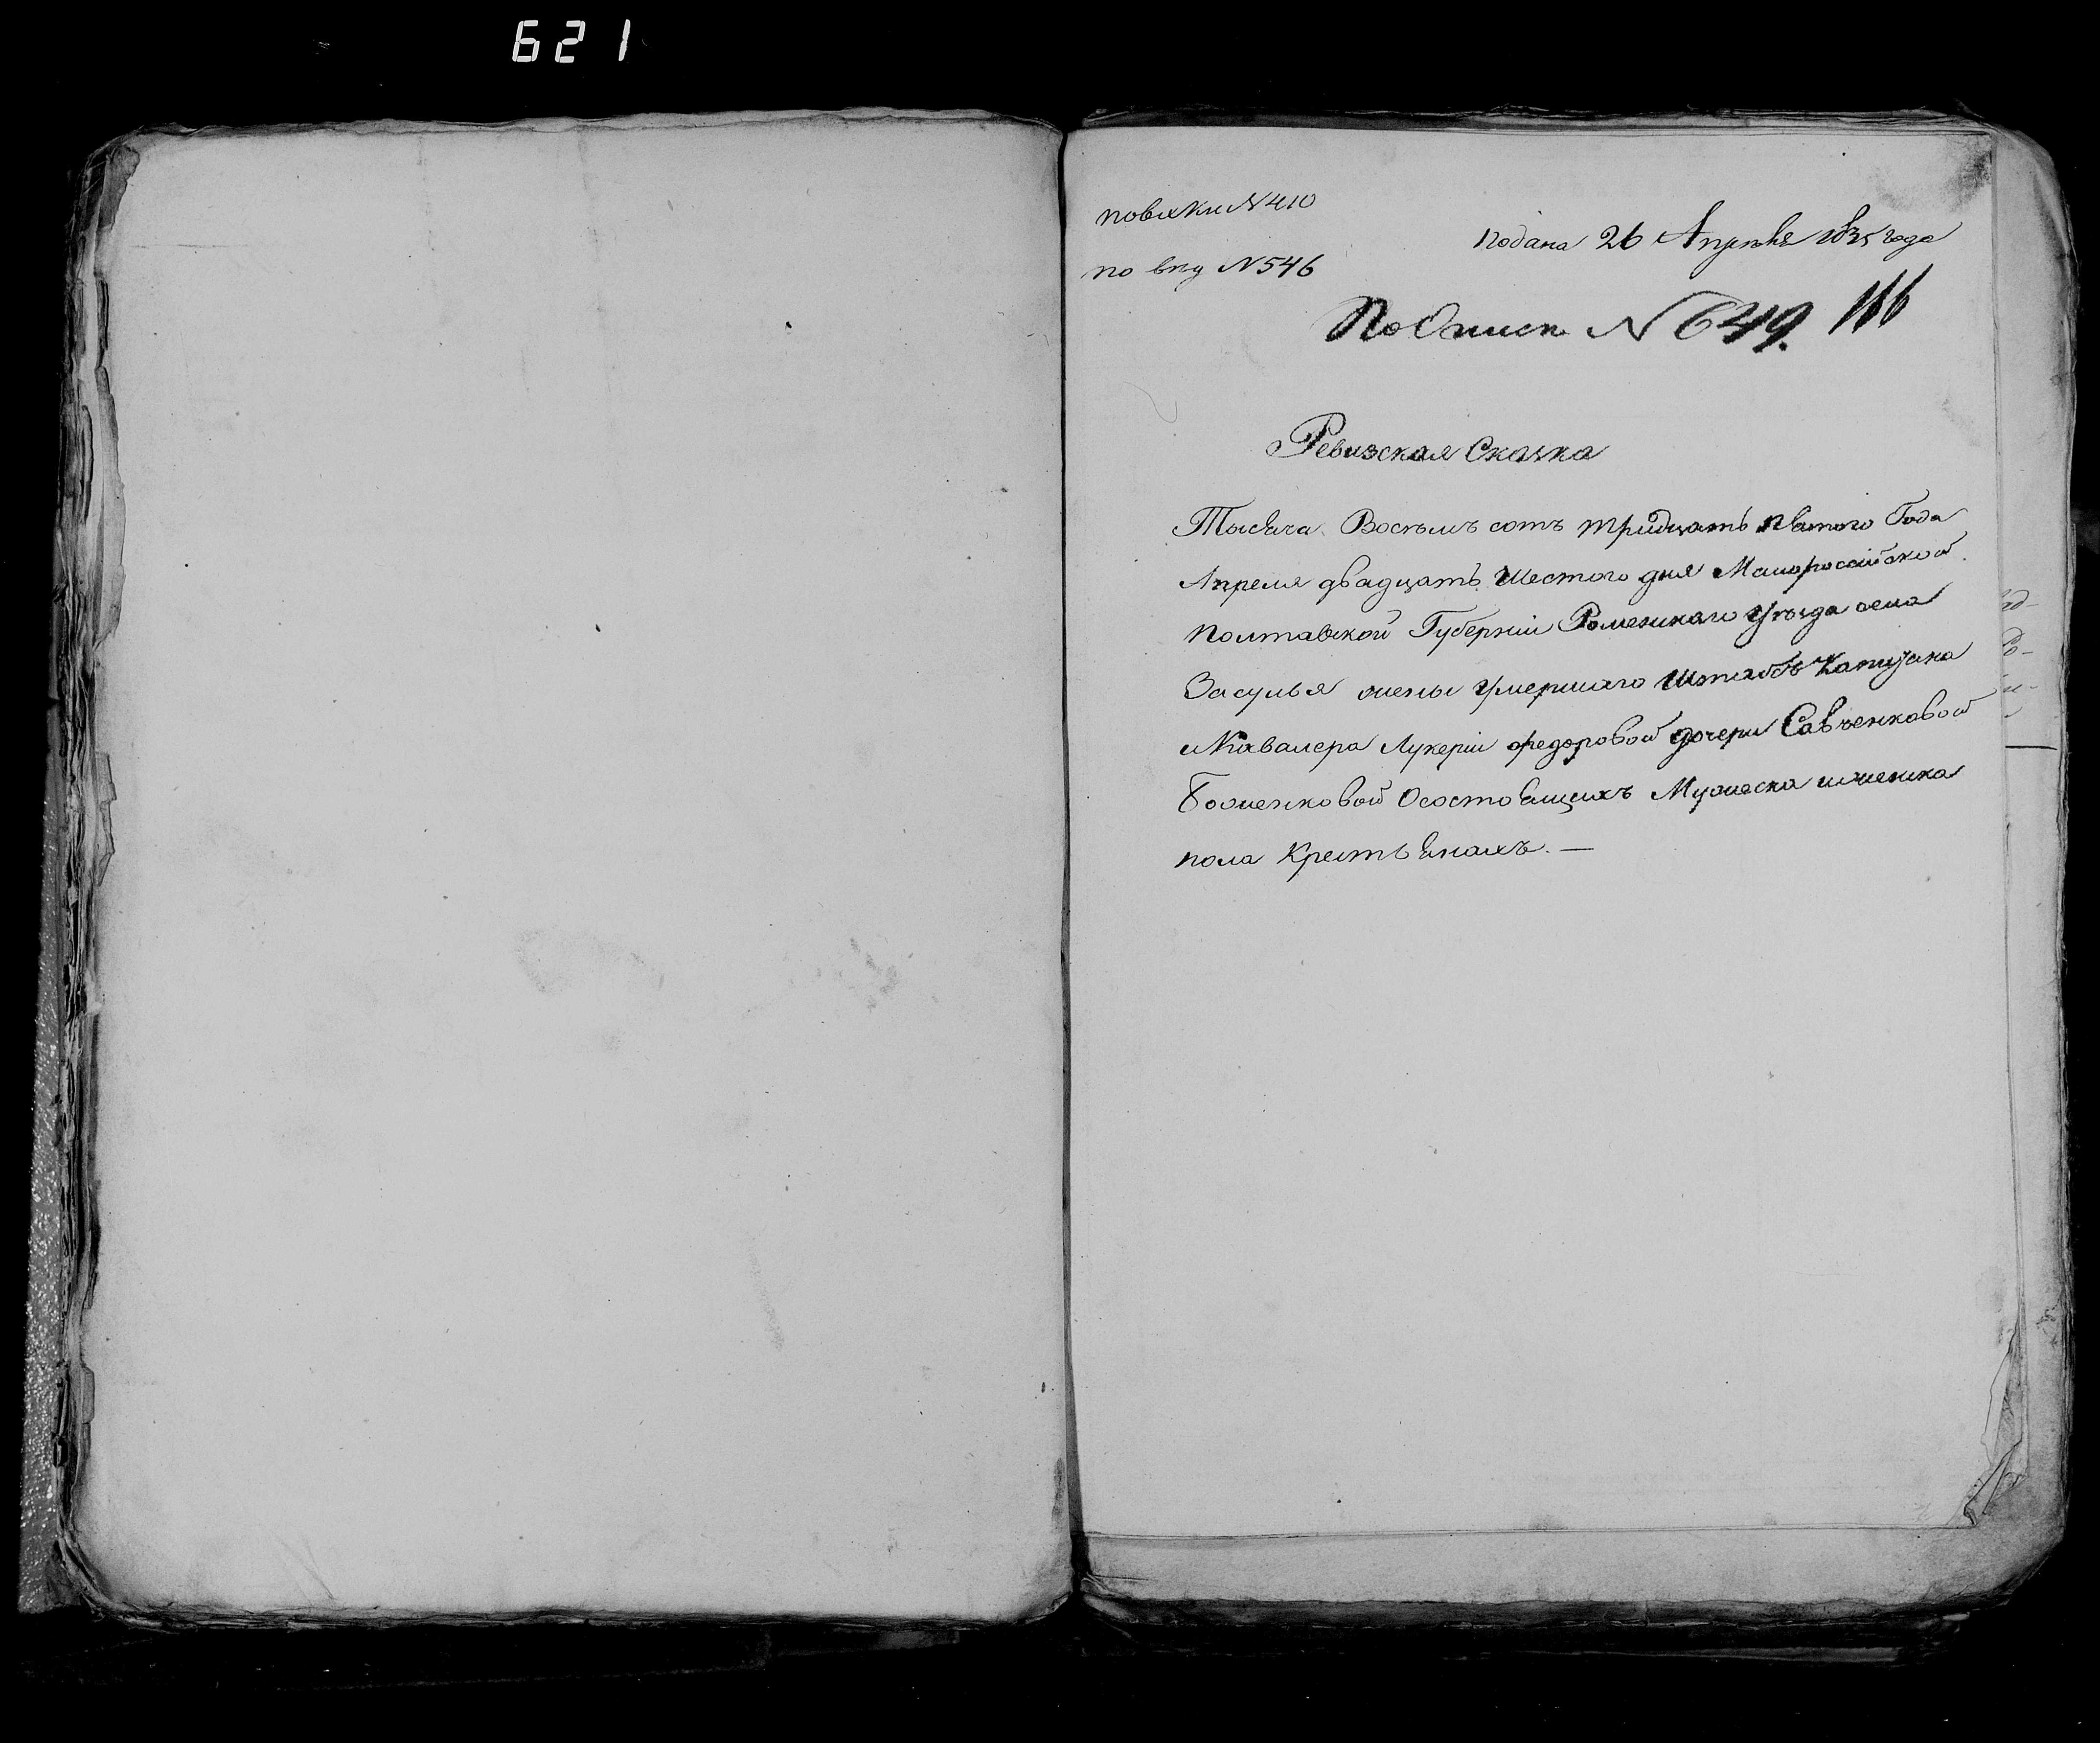 621
по вх кн N 410
подана 26 Апреля 1835 года
по вну N 546
По Описи N 649. 116
Ревизская Сказка
Тысяча Восемъ сотъ тридцать пятого Года
Апреля двадцать Шестого дня Малоросийской
Полтавской Губерніи Роменскаго Уезда села
Засулья жены умершаго Штабсъ Капитана
и Кавалера Лукеріи Федоровой дочери Савченковой
Боженковой Осостоящихъ Мужеска и женска
пола Крестьянахъ. —